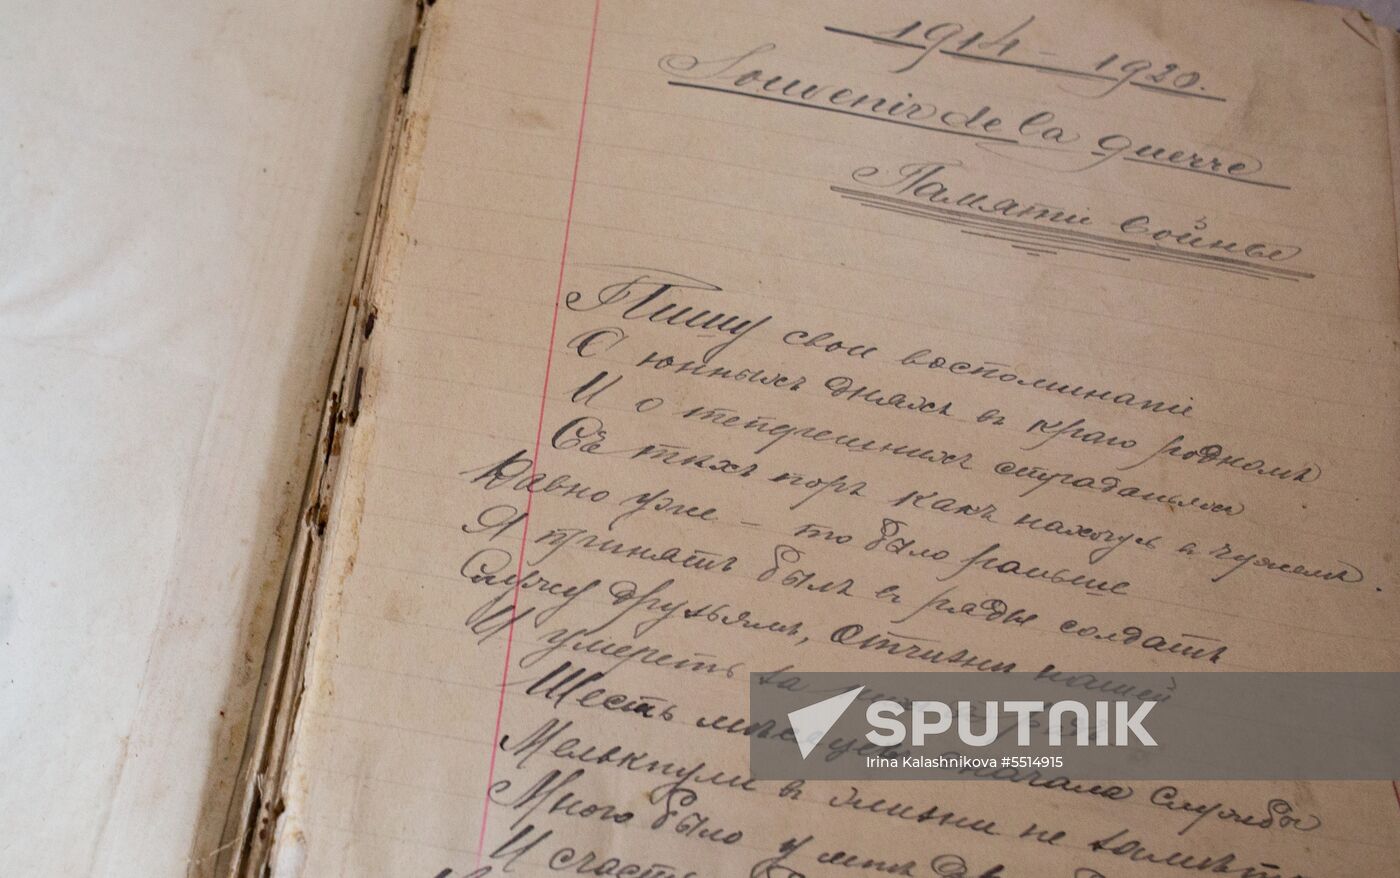 1914 – 1920.
Souvenir de la guerre
Памяти войны
Пишу свои воспоминанія
О юнныхъ дняхъ въ краю родномъ
И о тепѣрешнихъ страданьяхъ
Съ тѣхъ поръ какъ нахожусь въ чужомъ.
Давно уже – то было раньше
Я принятъ былъ въ ряды солдатъ
Служу друзьямъ, отчизны нашей
И умереть за
Шесть мѣсяцевъ сначала службы
Мелькнули въ жизни не
Много было у меня
И счасть
SPUTNIK
Irina Kalashnikova №5514915